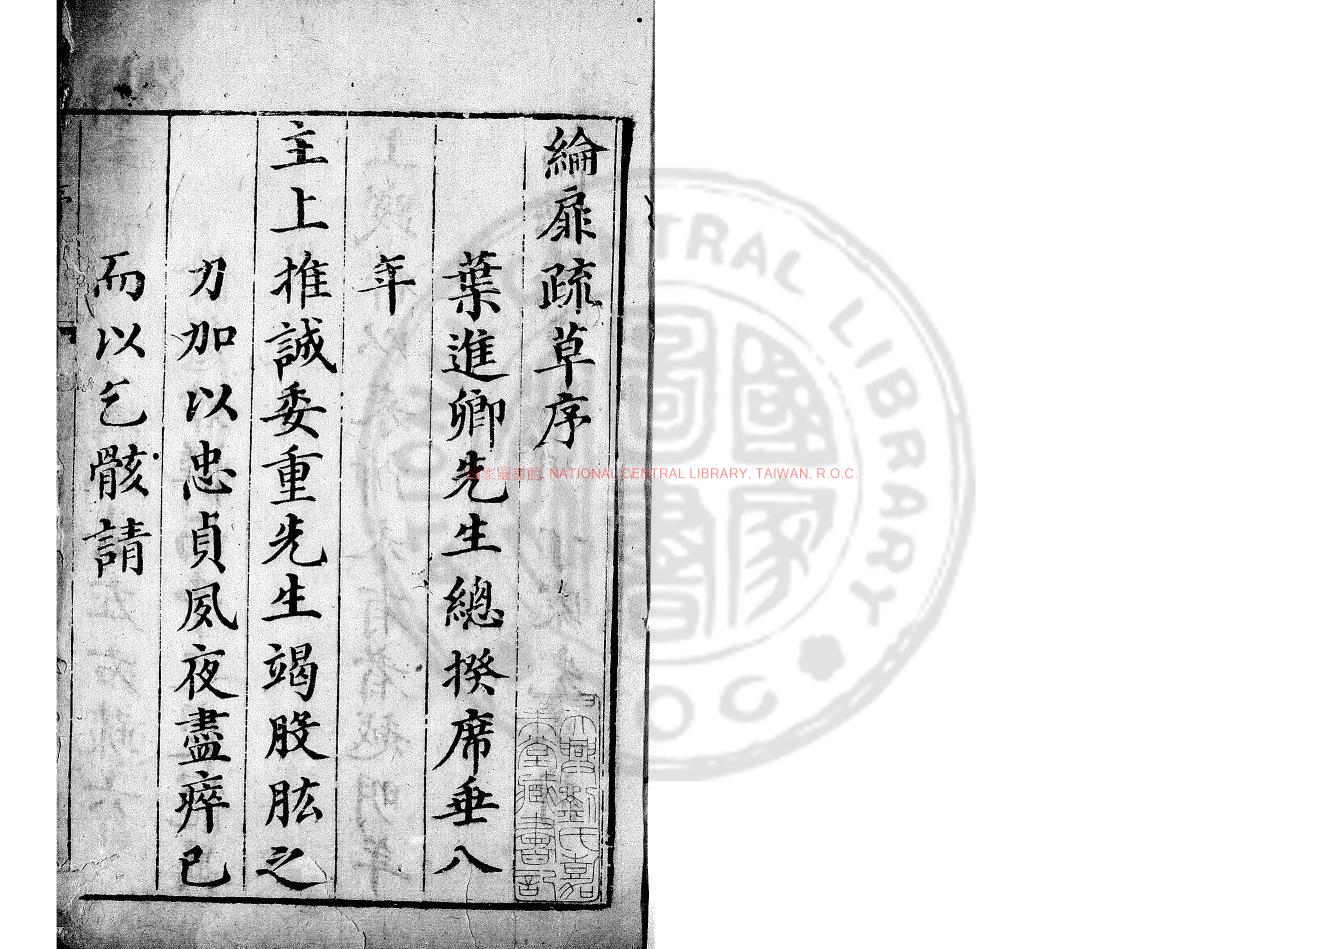 綸扉疏草序
葉進卿先生總揆席垂八
年
主上推誠委重先生竭股肱之
力加以忠貞夙夜盡瘁已
而以乞骸請
國家圖書館, NATIONAL CENTRAL LIBRARY, TAIWAN, R.O.C.
CENTRAL LIBRARY
劉氏嘉
堂藏書記